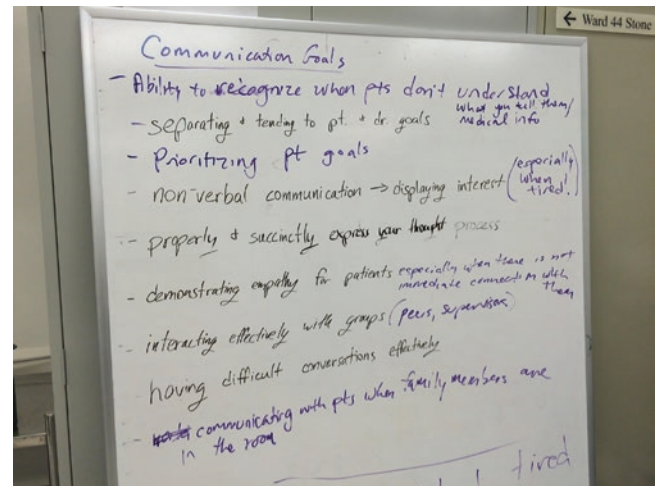 ← Ward 44 Stone
Communication Goals
- Ability to recognize when pts don't understand
what you tell them/
medical info
- separating & tending to pt. & dr. goals
- Prioritizing pt goals
- non-verbal communication → displaying interest (especially
when
tired!)
- properly & succinctly express your thought process
- demonstrating empathy for patients especially when there is not
immediate connection with
them
- interacting effectively with groups (peers, supervisors)
having difficult conversations effectively
- communicating with pts when family members are
in the room
tired